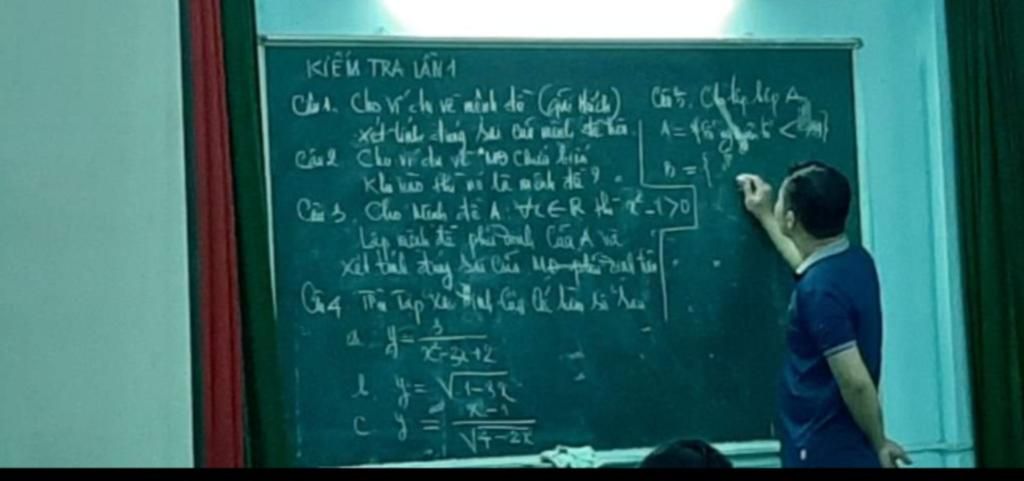 KIỂM TRA LẦN 1
Câu 1. Cho ví dụ về mệnh đề (giải thích)
xét tính đúng sai của mệnh đề trên
Câu 2 Cho ví dụ về MĐ chứa biến
Khi nào thì nó là mệnh đề ?
Câu 3. Cho Mệnh đề A: ∀x ∈ R thì x² - 1 > 0
Lập mệnh đề phủ định của A và
xét tính đúng sai của MĐ phủ định trên
Câu 4 Tìm Tập xác định của các hàm số sau
a y = 3 / x² - 3x + 2
b. y = √1-3x
c y = x - 1 / √4-2x
Câu 5. Cho tập hợp A
A = {Số nguyên tố <
B = {